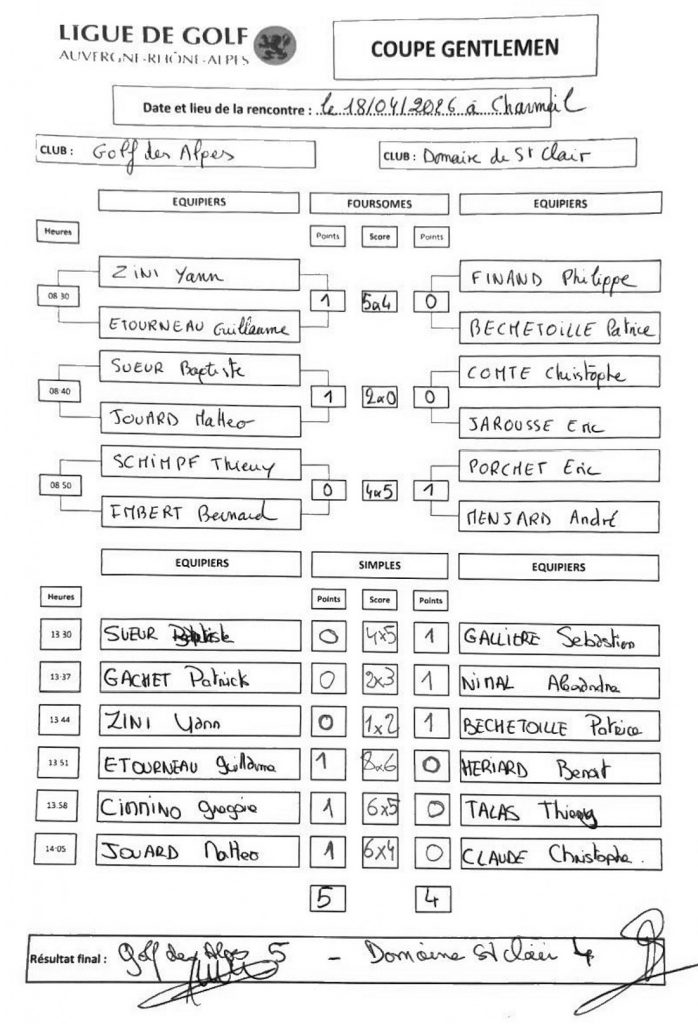 LIGUE DE GOLF
AUVERGNE-RHÔNE-ALPES
COUPE GENTLEMEN
Date et lieu de la rencontre : le 18/04/2026 à Charmeil
CLUB : Golf des Alpes CLUB : Domaine de St Clair
EQUIPIERS FOURSOMES EQUIPIERS
Heures Points Score Points
ZINI Yann FINAND Philippe
08 30 1 5a4 0
ETOURNEAU Guillaume BECHETOILLE Patrice
SUEUR Baptiste COMTE Christophe
08 40 1 2a0 0
JOUARD Matteo JAROUSSE Eric
SCHIMPF Thierry PORCHET Eric
08 50 0 4a5 1
IMBERT Bernard MENSARD André
EQUIPIERS SIMPLES EQUIPIERS
Heures Points Score Points
13 30 SUEUR Baptiste 0 4x5 1 GALLIERE Sébastien
13-37 GACHET Patrick 0 2x3 1 NIMAL Alexandre
13 44 ZINI Yann 0 1x2 1 BECHETOILLE Patrice
13 51 ETOURNEAU Guillaume 1 8x6 0 HERIARD Benoit
13.58 CIMINO Grégoire 1 6x5 0 TALAS Thierry
14-05 JOUARD Matteo 1 6x4 0 CLAUDE Christophe.
5 4
Résultat final : Golf des Alpes 5 - Domaine St Clair 4